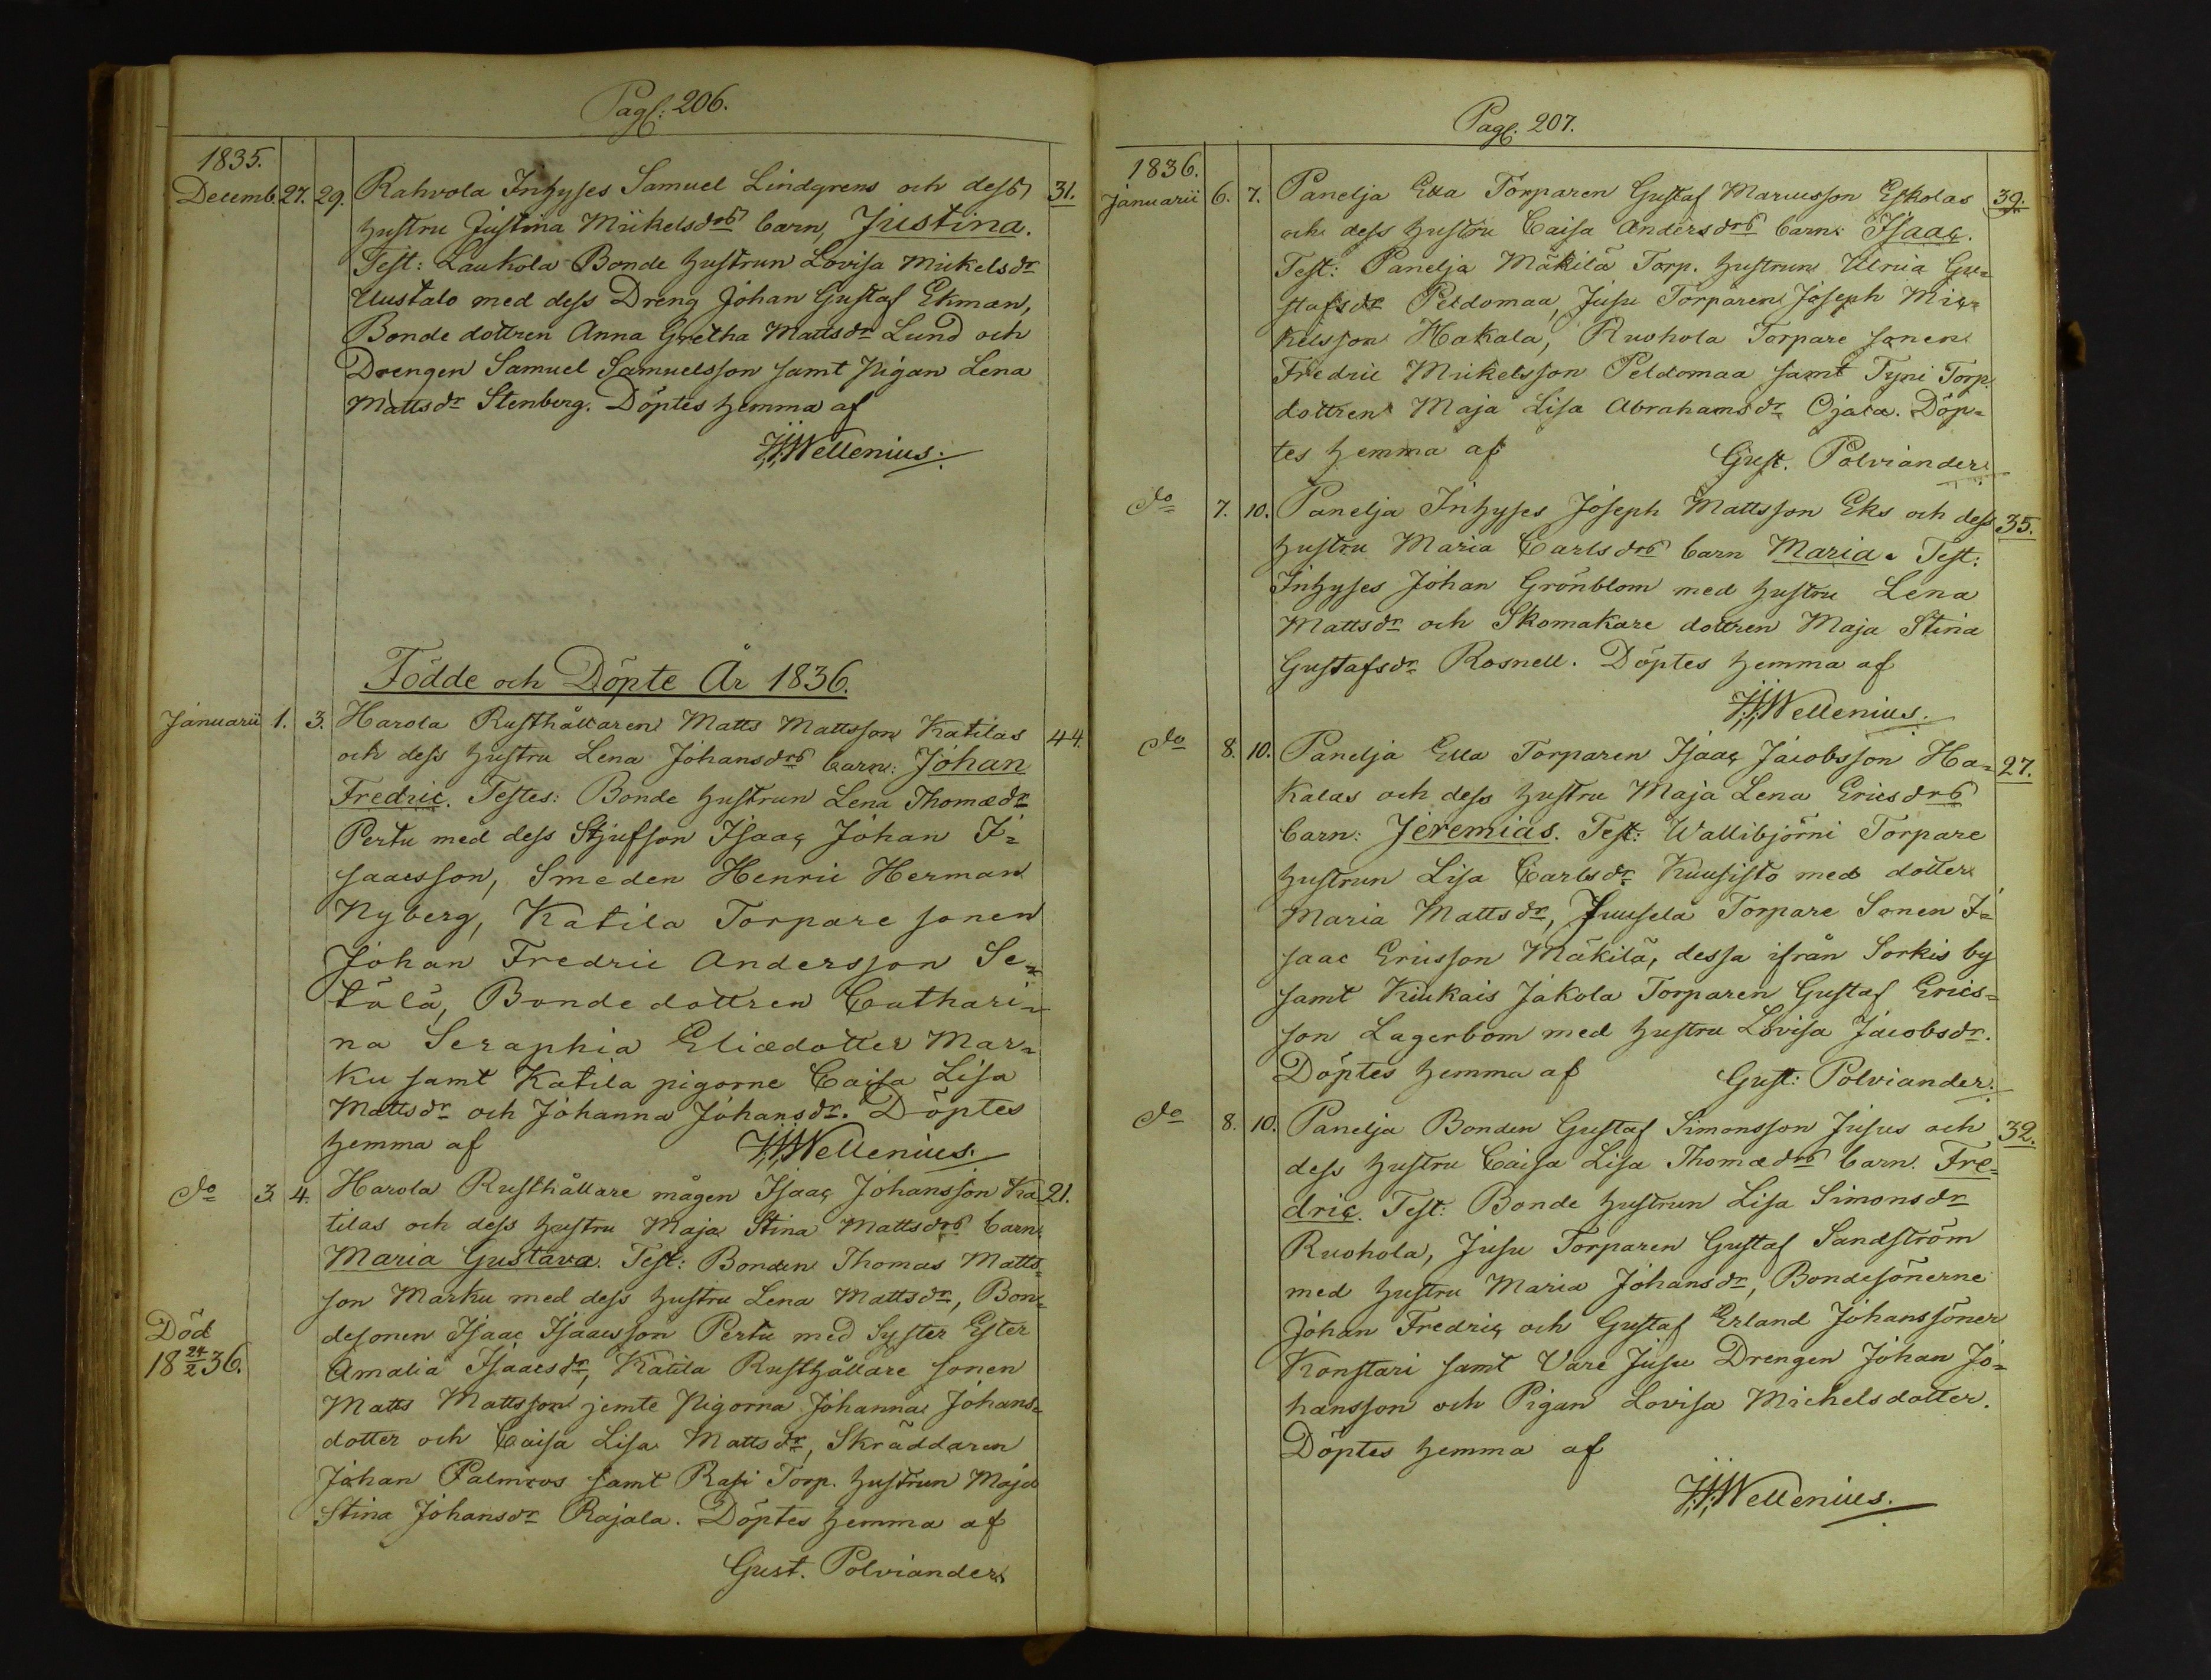 Pag: 206.
1835.
Decemb. 27. 29. Rahvola Inhyses Samuel Lindgrens och dess 31.
hustru Justina Mickelsdrs barn, Justina.
Test: Laukola Bonde hustrun Lovisa Mickelsdr
Uustalo med dess Dreng Johan Gustaf Ekman,
Bonde dottren Anna Gretha Mattsdr Lund och
Drengen Samuel Samuelsson samt Pigan Lena
Mattsdr Stenberg. Döptes hemma af
Wellenius.
Födde och Döpte År 1836.
Januarii 1. 3. Harola Rusthållaren Matts Mattsson Katilas 44.
och dess hustru Lena Johansdrs barn: Johan
Fredric. Testes: Bonde hustrun Lena Thomædr
Pertu med dess Stjufson Isaac Johan I=
saacsson, Smeden Henric Herman
Nyberg, Katila Torpare sonen
Johan Fredric Andersson Se=
tälä, Bonde dottren Cathari=
na Seraphia Eliædotter Mar=
ku samt Katila pigorne Caisa Lisa
Mattsdr och Johanna Johansdr. Döptes
hemma af Wellenius.
do 3 4. Harola Rusthållare mågen Isaac Johansson Ka 21.
tilas och dess hustru Maja Stina Mattsdrs barn
Maria Gustava. Test: Bonden Thomas Matts=
son Marku med dess hustru Lena Mattsdr, Bon=
desonen Isaac Isaacsson Pertu med Syster Ester
Död
18 24/2 36.
Amalia Isaacsdr, Katila Rusthållare sonen
Matts Mattsson jemte Pigorna Johanna Johans=
dotter och Caisa Lisa Mattsdr, Skräddaren
Johan Palmroos samt Rasi Torp. hustrun Maja
Stina Johansdr Rajala. Döptes hemma af
Gust. Polviander
Pag: 207.
1836.
Januarii 6. 7. Panelja Torparen Gustaf Marcusson Eskolas 39.
och dess hustru Caisa Andersdrs barn: Isaac.
Test: Panelja Mäkilä Torp. hustrun Ulrica Gu=
stafsdr Peldomaa, Jusu Torparen Joseph Mic=
kelsson Hakala, Ruohola Torpare sonen
Fredric Mickelsson Peldomaa samt Tyni Torp.
dottren Maja Lisa Abrahamsdr Ojala. Döp=
tes hemma af Gust. Polviander
do 7. 10. Panelja Inhyses Joseph Mattsson Eks och dess 35.
hustru Maria Carlsdrs barn Maria. Test:
Inhyses Johan Grönblom med hustru Lena
Mattsdr och Skomakare dottren Maja Stina
Gustafsdr Rosnell. Döptes hemma af
Wellenius.
do 8. 10. Panelja Torparen Isaac Jacobsson Ha= 27.
kalas och dess hustru Maja Lena Ericsdrs
barn: Jeremias. Test: Wallibjörni Torpare
hustrun Lisa Carlsdr Kuusisto med dotter
Maria Mattsdr, Juusela Torpare Sonen I=
saac Ericsson Mäkilä, dessa ifrån Sorkis by
samt Kiukais Jakola Torparen Gustaf Erics=
son Lagerbom med hustru Lovisa Jacobsdr.
Döptes hemma af Gust: Polviander.
do 8. 10. Panelja Bonden Gustaf Simonsson Jusus och 32.
dess hustru Caisa Lisa Thomædrs barn. Fre=
dric. Test: Bonde hustrun Lisa Simonsdr
Ruohola, Jusu Torparen Gustaf Sandström
med hustru Maria Johansdr, Bondesönerne
Johan Fredric och Gustaf Erland Johanssöner
Konstari samt Vare Jusu Drengen Johan Jo=
hansson och Pigan Lovisa Michelsdotter.
Döptes hemma af
Wellenius.